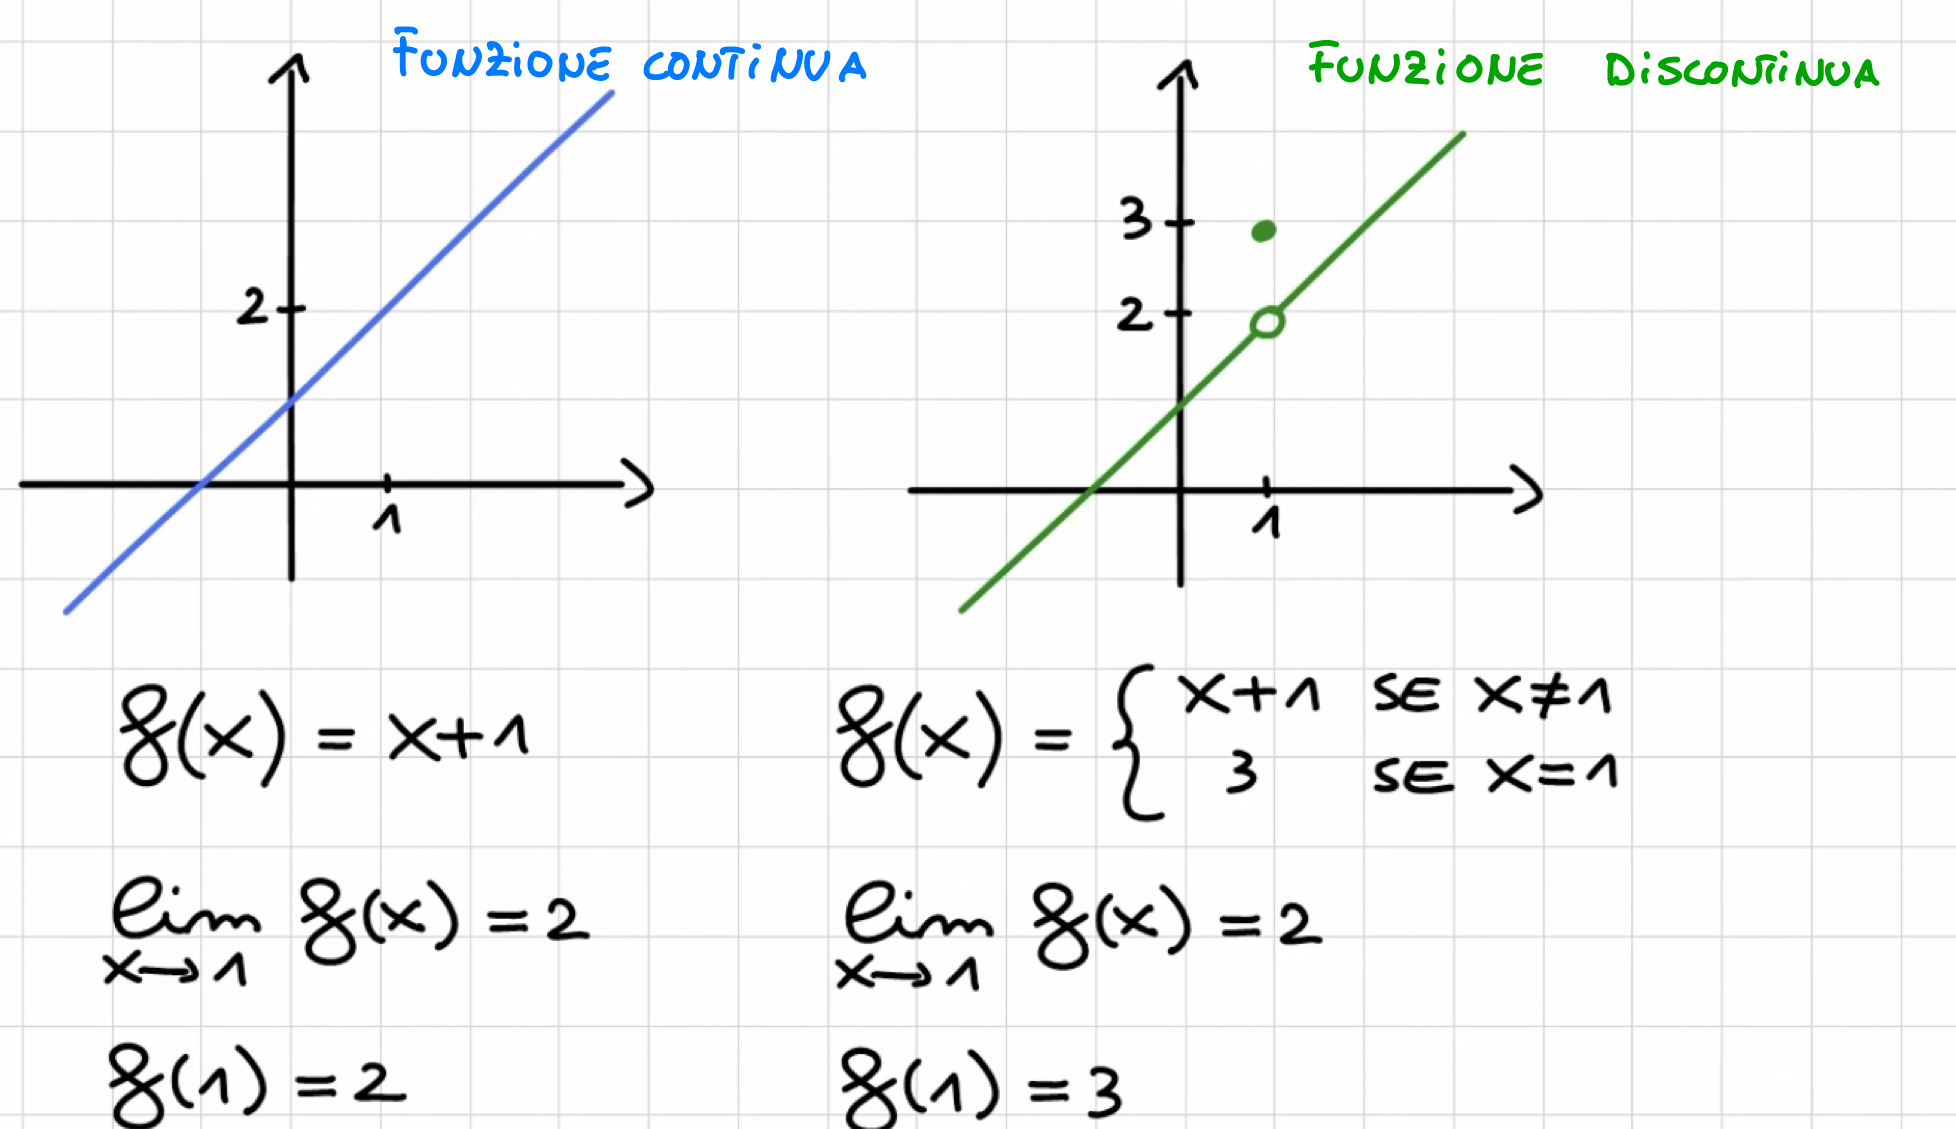 FUNZIONE CONTINUA
2
1
f(x) = x+1
lim f(x) = 2
x→1
f(1) = 2
FUNZIONE DISCONTINUA
3
2
1
f(x) = { x+1 SE x≠1
3 SE x=1
lim f(x) = 2
x→1
f(1) = 3